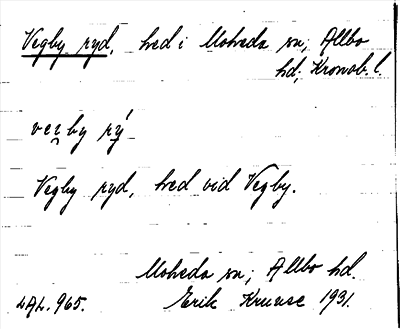 Vegby ryd, hed i Moheda sn; Allbo
hd; Kronob. l.
vegby rý
Vegby ryd, hed vid Vegby.
Moheda sn; Allbo hd.
LAL. 965. Erik Kruuse 1931.